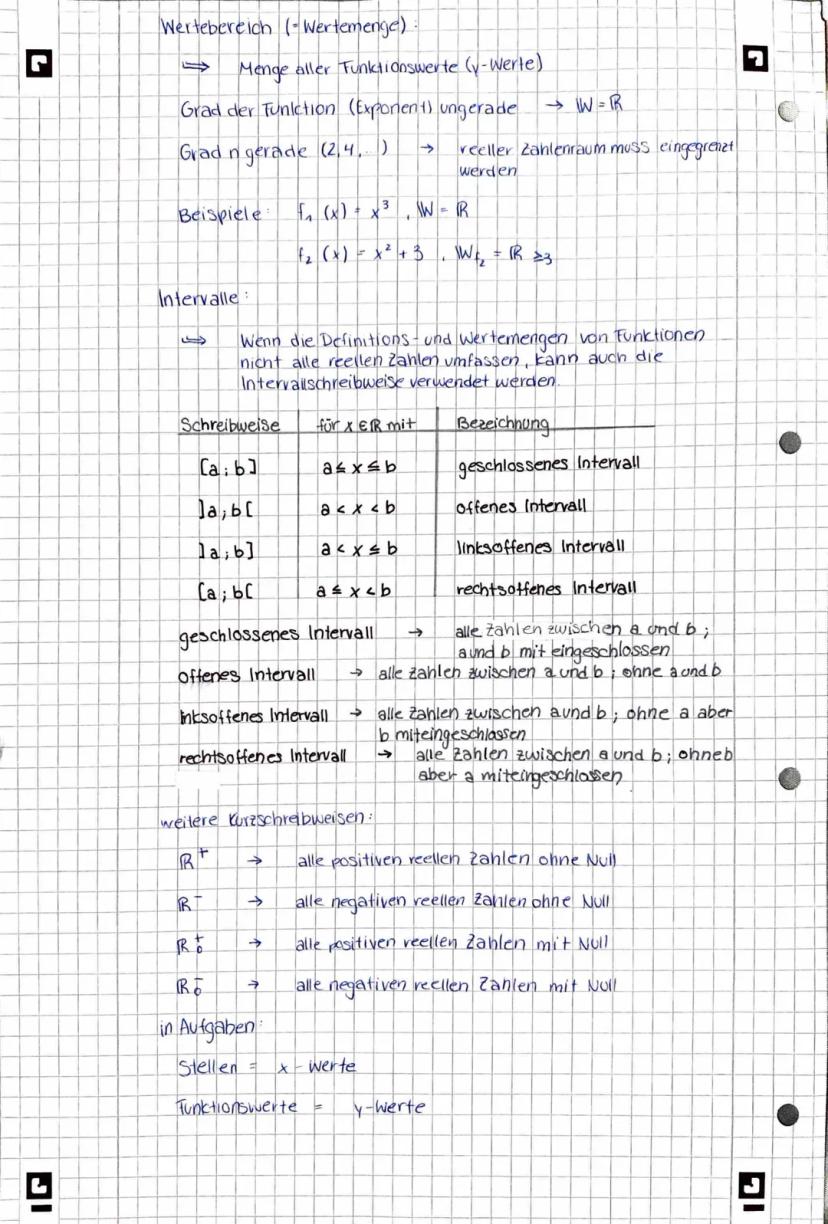 Wertebereich (=Wertemenge):
⇒ Menge aller Funktionswerte (y-Werte)
Grad der Funktion (Exponent) ungerade → W = ℝ
Grad n gerade (2,4,...) → reeller Zahlenraum muss eingegrenzt
werden
Beispiele: f₁ (x) = x³ , W = ℝ
f₂ (x) = x² + 3 , W_f₂ = ℝ ≥3
Intervalle:
⇒ Wenn die Definitions- und Wertemengen von Funktionen
nicht alle reellen Zahlen umfassen, kann auch die
Intervallschreibweise verwendet werden.
Schreibweise für x ∈ ℝ mit Bezeichnung
[a;b] a ≤ x ≤ b geschlossenes Intervall
]a;b[ a < x < b offenes Intervall
]a;b] a < x ≤ b linksoffenes Intervall
[a;b[ a ≤ x < b rechtsoffenes Intervall
geschlossenes Intervall → alle Zahlen zwischen a und b ;
a und b mit eingeschlossen
offenes Intervall → alle Zahlen zwischen a und b ; ohne a und b
linksoffenes Intervall → alle Zahlen zwischen a und b ; ohne a aber
b miteingeschlossen
rechtsoffenes Intervall → alle Zahlen zwischen a und b ; ohne b
aber a miteingeschlossen
weitere Kurzschreibweisen:
ℝ⁺ → alle positiven reellen Zahlen ohne Null
ℝ⁻ → alle negativen reellen Zahlen ohne Null
ℝ₀⁺ → alle positiven reellen Zahlen mit Null
ℝ₀⁻ → alle negativen reellen Zahlen mit Null
in Aufgaben:
Stellen = x-Werte
Funktionswerte = y-Werte